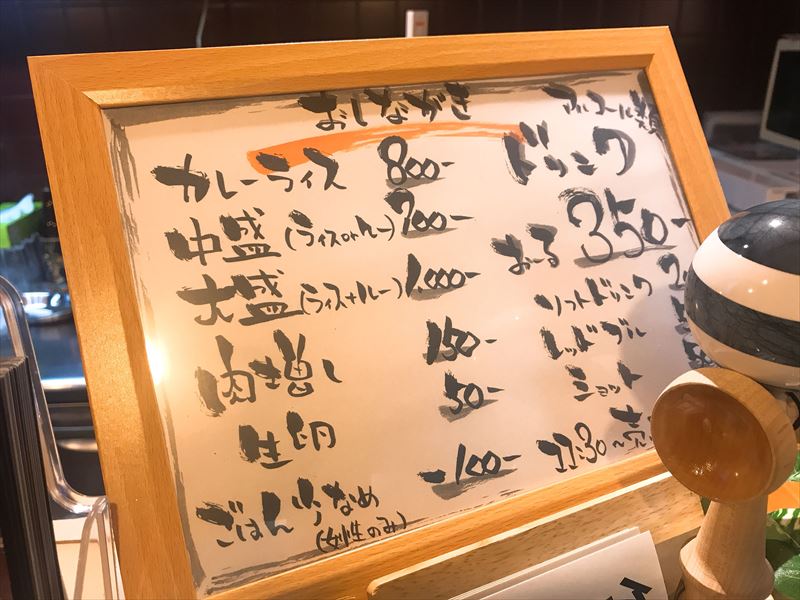 おしながき
カレーライス 800-
中盛(ライスorルー) 900-
大盛(ライス+ルー) 1,000-
肉増し 150-
生卵 50-
ごはん少なめ -100-
(女性のみ)
アルコール類
ドリンク
おーる 350-
ソフトドリンク 2
レッドブル
ショット
22:30〜売